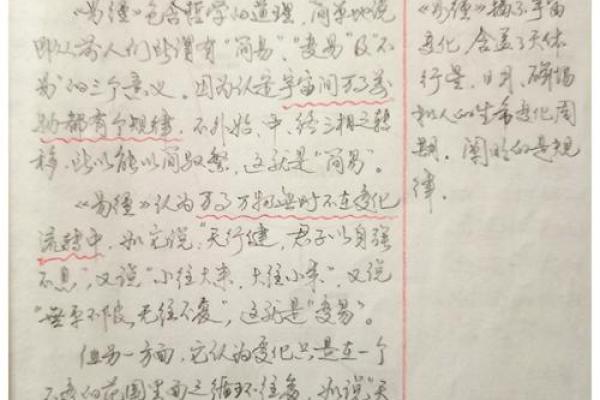 《易經》包含哲学的道理，简单地说
即以前人们所谓有“简易”、“变易”及“不
易”的三个意义。因为认定宇宙间万事万
物都有个规律，不外始、中、终三相之转
移，此以能以简驭繁，这就是“简易”。
《易經》认为万事万物无时不在变化
流转中，如它说：“天行健，君子以自强
不息”，又说“小往大来，大往小来”，又说
“无平不陂，无往不复”，这就是“变易”。
但另一方面，它认为变化只是在一个
不变的范围里面这循环往复，如说“天
《易經》揭示宇宙
变化，含盖了天体
行星、日月、磁场
和人的生命变化周
期，阐明的是规
律。